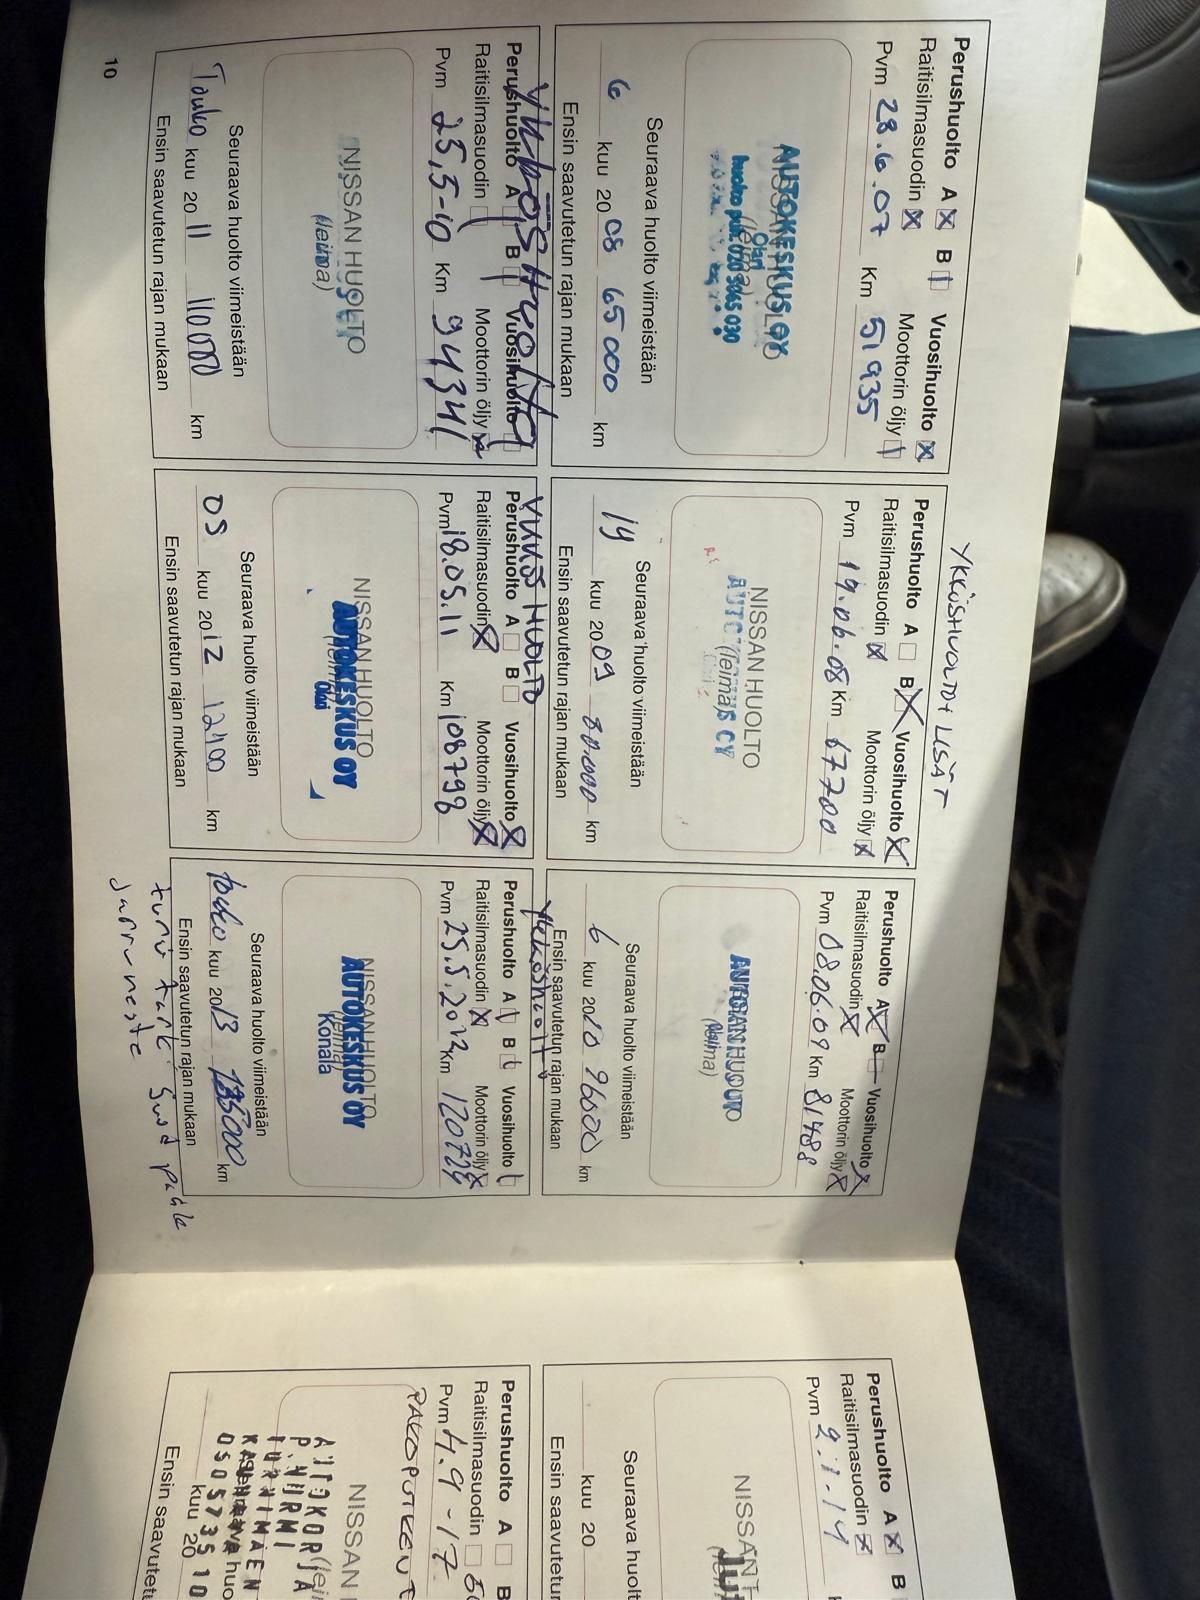 Perushuolto A ☒ B ☐ Vuosihuolto ☒
Raitisilmasuodin ☒ Moottorin öljy ☐
Pvm 28.6.07 Km 51935
NISSAN HUOLTO
(leima)
AUTOKESKUS OY
Olari
huolto puh. 020 5065 030
Seuraava huolto viimeistään
6 kuu 20 08 65 000 km
Ensin saavutetun rajan mukaan
YKKÖSHUOLTO+ LISÄT
Perushuolto A ☐ B ☒ Vuosihuolto ☒
Raitisilmasuodin ☒ Moottorin öljy ☒
Pvm 19.06.08 Km 67700
NISSAN HUOLTO
(leima)
Seuraava huolto viimeistään
kuu 20 09 80000 km
Ensin saavutetun rajan mukaan
Perushuolto A ☒ B ☐ Vuosihuolto ☒
Raitisilmasuodin ☒ Moottorin öljy ☒
Pvm 08.06.09 Km 81488
NISSAN HUOLTO
(leima)
Seuraava huolto viimeistään
6 kuu 2010 96000 km
Ensin saavutetun rajan mukaan
Perushuolto A ☒ B
Raitisilmasuodin ☒
Pvm 2.1-14
NISSAN
Seuraava huolt
kuu 20
Ensin saavutetun
Ykköshuolto
Perushuolto A ☐ B ☐ Vuosihuolto ☐
Raitisilmasuodin ☐ Moottorin öljy ☒
Pvm 25,5-10 Km 94341
NISSAN HUOLTO
(leima)
Seuraava huolto viimeistään
Touko kuu 20 11 110000 km
Ensin saavutetun rajan mukaan
VUOSIHUOLTO
Perushuolto A ☐ B ☐ Vuosihuolto ☒
Raitisilmasuodin ☒ Moottorin öljy ☒
Pvm 18.05.11 Km 108798
NISSAN HUOLTO
(leima)
AUTOKESKUS OY
Olari
Seuraava huolto viimeistään
05 kuu 2012 km
Ensin saavutetun rajan mukaan
Ykköshuolto
Perushuolto A ☐ B ☐ Vuosihuolto ☐
Raitisilmasuodin ☒ Moottorin öljy ☒
Pvm 25.5.2012 Km 120724
NISSAN HUOLTO
(leima)
AUTOKESKUS OY
Konala
Seuraava huolto viimeistään
touko kuu 2013 135000 km
Ensin saavutetun rajan mukaan
jarruneste
Perushuolto A ☐ B
Raitisilmasuodin ☐
Pvm 4.9-17
PAKOPUTKEN
NISSAN
AUTOKORJA
P.NURMI
050573510
kuu 20
Ensin saavutetu
10